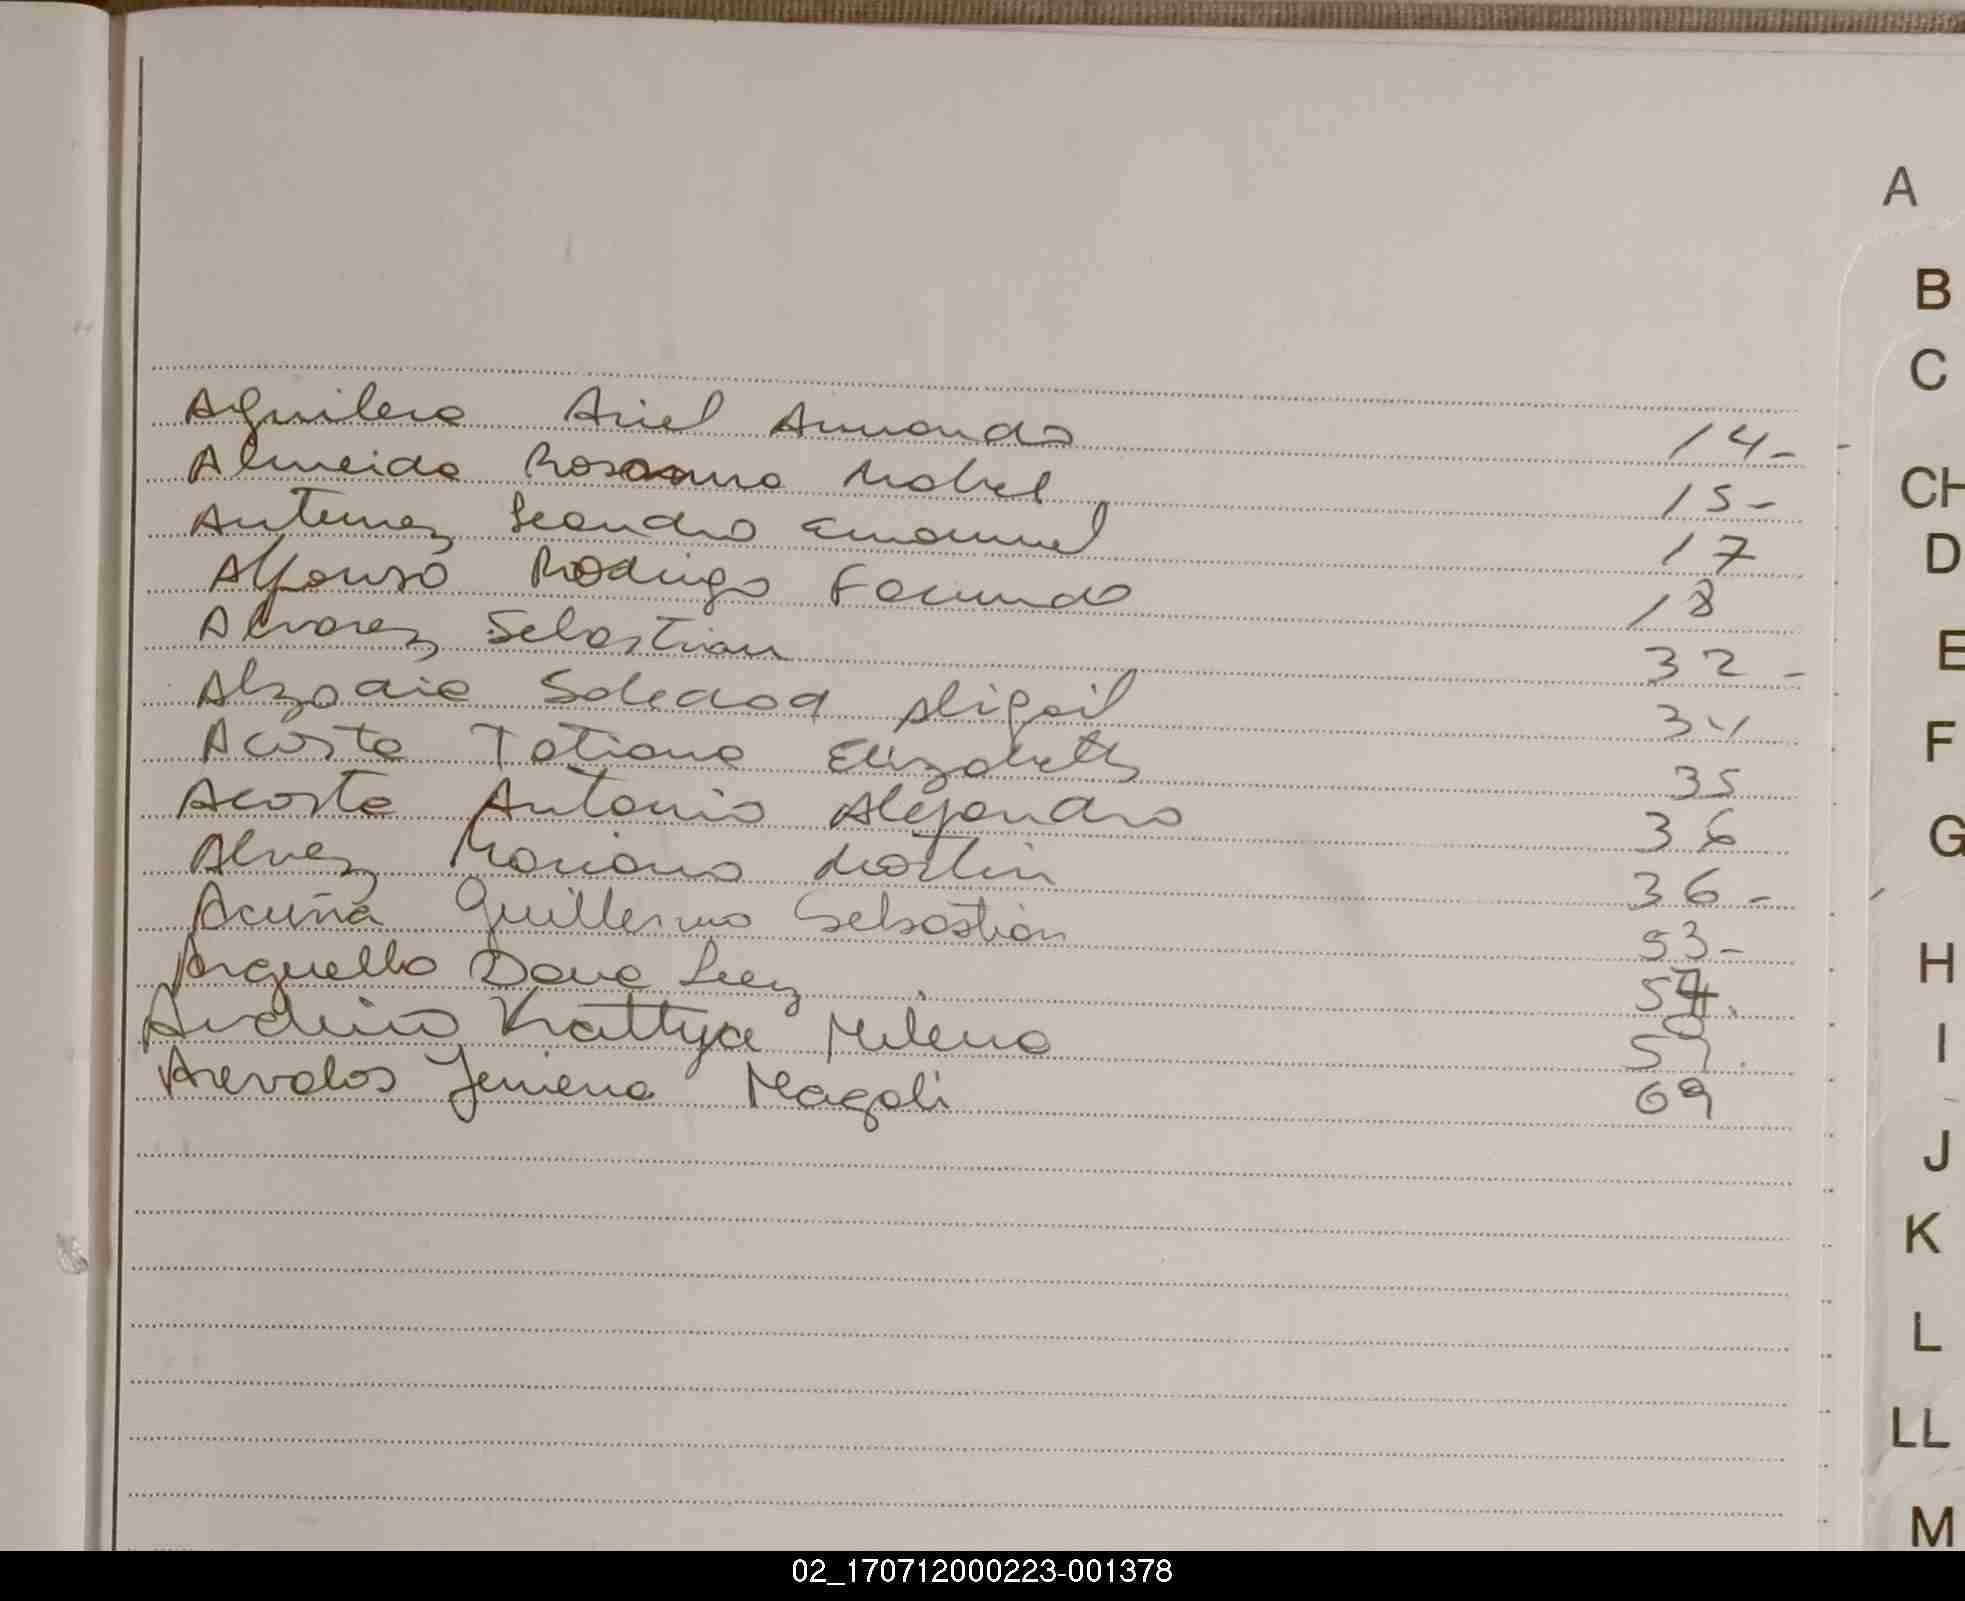 A
B
C
CH
D
E
F
G
H
I
J
K
L
LL
M
Aguilera Ariel Armando 14-
Almeida Rosanna Mabel 15-
Antunez Leandro Emanuel 17
Alfonso Rodrigo Facundo 18
Alvarez Sebastian 32-
Soledad Abigail 34
Acosta Tatiana Elizabeth 35
Acosta Antonio Alejandro 36
Alvez Mariano Martin 36-
Acuña Guillermo Sebastián 53-
Arguello Dana Luz 54.
Kattya Milena 59.
Arevalos Jimena Magali 69
02_170712000223-001378